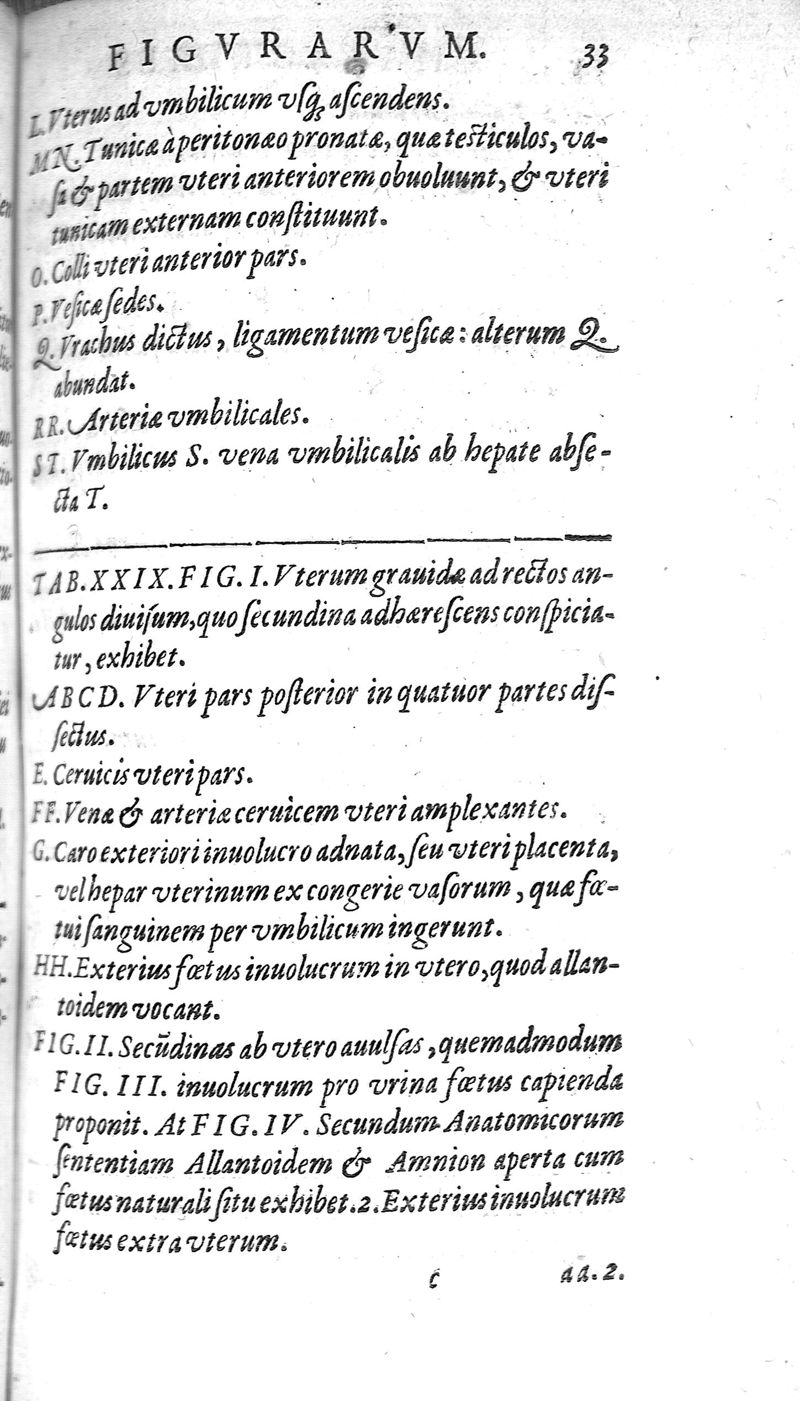 FIGVRARVM. 33
L. Vterus ad vmbilicum vſq; aſcendens.
MN. Tunicæ à peritonæo pronatæ, quæ teſticulos, va-
ſa & partem vteri anteriorem obuoluunt, & vteri
tunicam externam conſtituunt.
O. Colli vteri anterior pars.
P. Veſicæ ſedes.
Q. Vrachus dictus, ligamentum veſicæ: alterum Q.
abundat.
RR. Arteriæ vmbilicales.
ST. Vmbilicus S. vena vmbilicalis ab hepate abſe-
cta T.
TAB. XXIX. FIG. I. Vterum grauidæ ad rectos an-
gulos diuiſum, quo ſecundina adhæreſcens conſpicia-
tur, exhibet.
ABCD. Vteri pars poſterior in quatuor partes diſ-
ſectus.
E. Ceruicis vteri pars.
FF. Venæ & arteriæ ceruicem vteri amplexantes.
G. Caro exteriori inuolucro adnata, ſeu vteri placenta,
vel hepar vterinum ex congerie vaſorum, quæ fœ-
tui ſanguinem per vmbilicum ingerunt.
HH. Exterius fœtus inuolucrum in vtero, quod allan-
toidem vocant.
FIG. II. Secūdinas ab vtero auulſas, quemadmodum
FIG. III. inuolucrum pro vrina fœtus capienda
proponit. At FIG. IV. Secundum Anatomicorum
ſententiam Allantoidem & Amnion aperta cum
fœtus naturali ſitu exhibet. 2. Exterius inuolucrum
fœtus extra vterum.
c aa. 2.